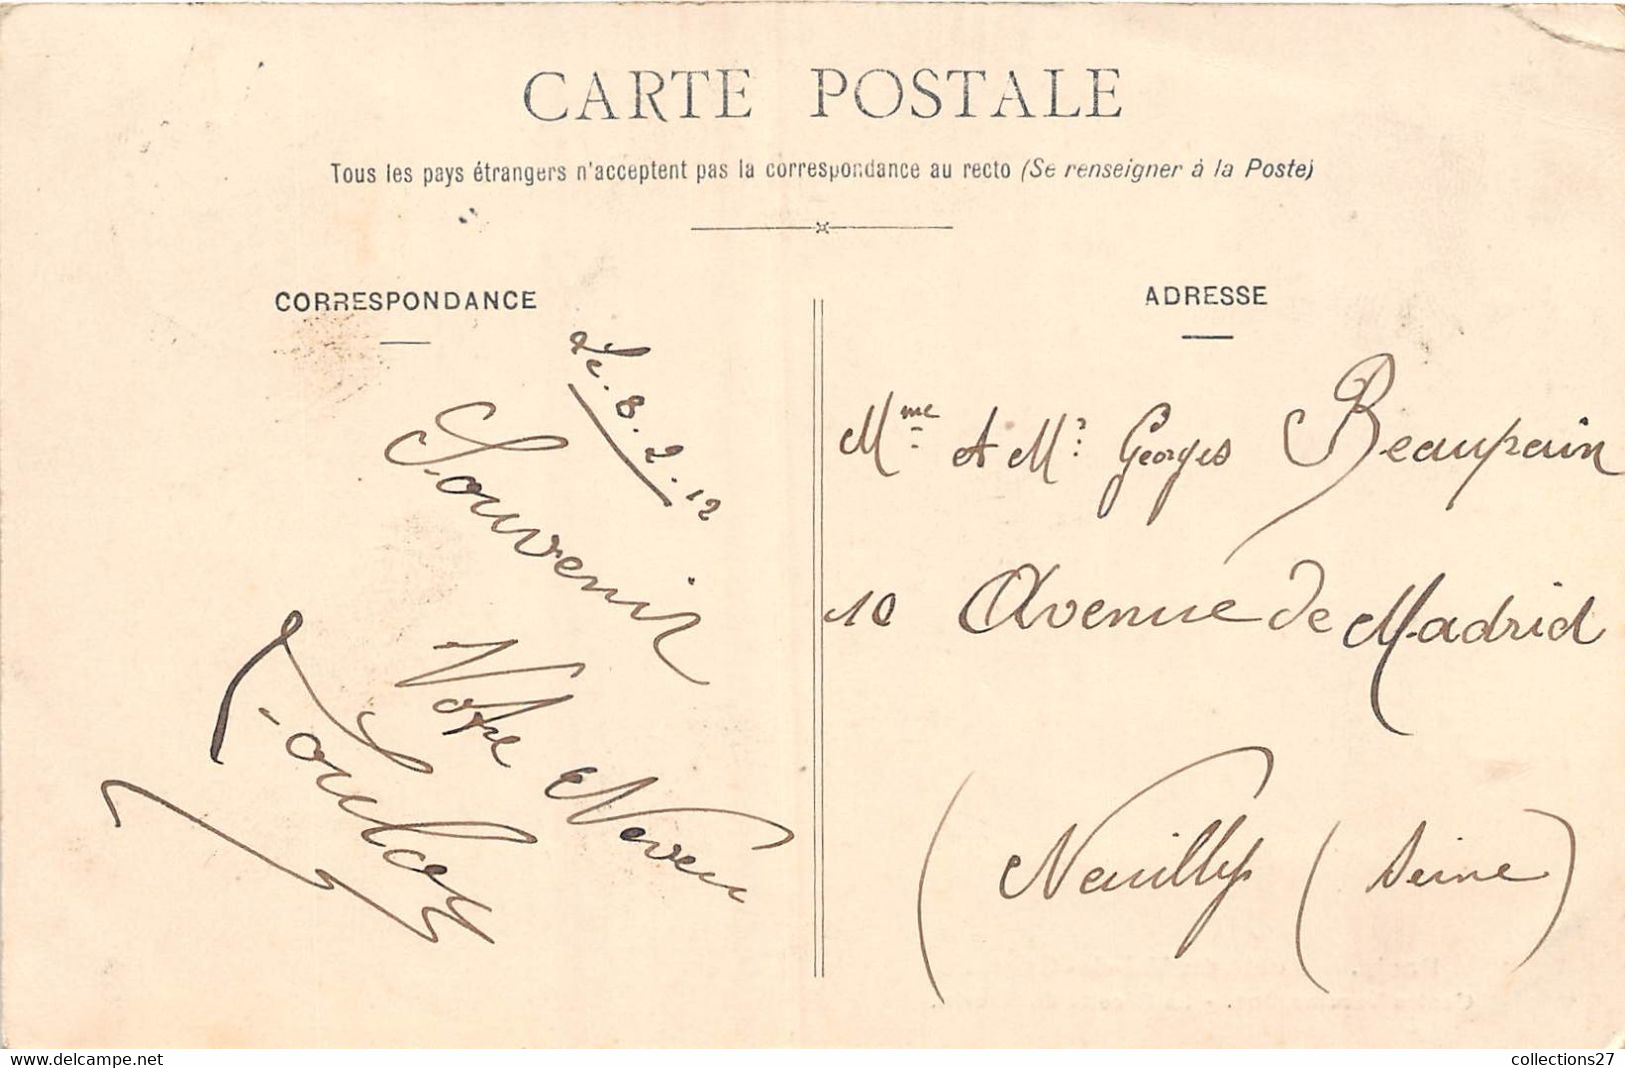 CARTE POSTALE
Tous les pays étrangers n'acceptent pas la correspondance au recto (Se renseigner à la Poste)
CORRESPONDANCE
Le. 8. 2. 12
Souvenir
Votre Neveu
ADRESSE
Mme et Mr Georges Beaupain
10 Avenue de Madrid
(Neuilly (Seine)
collections27